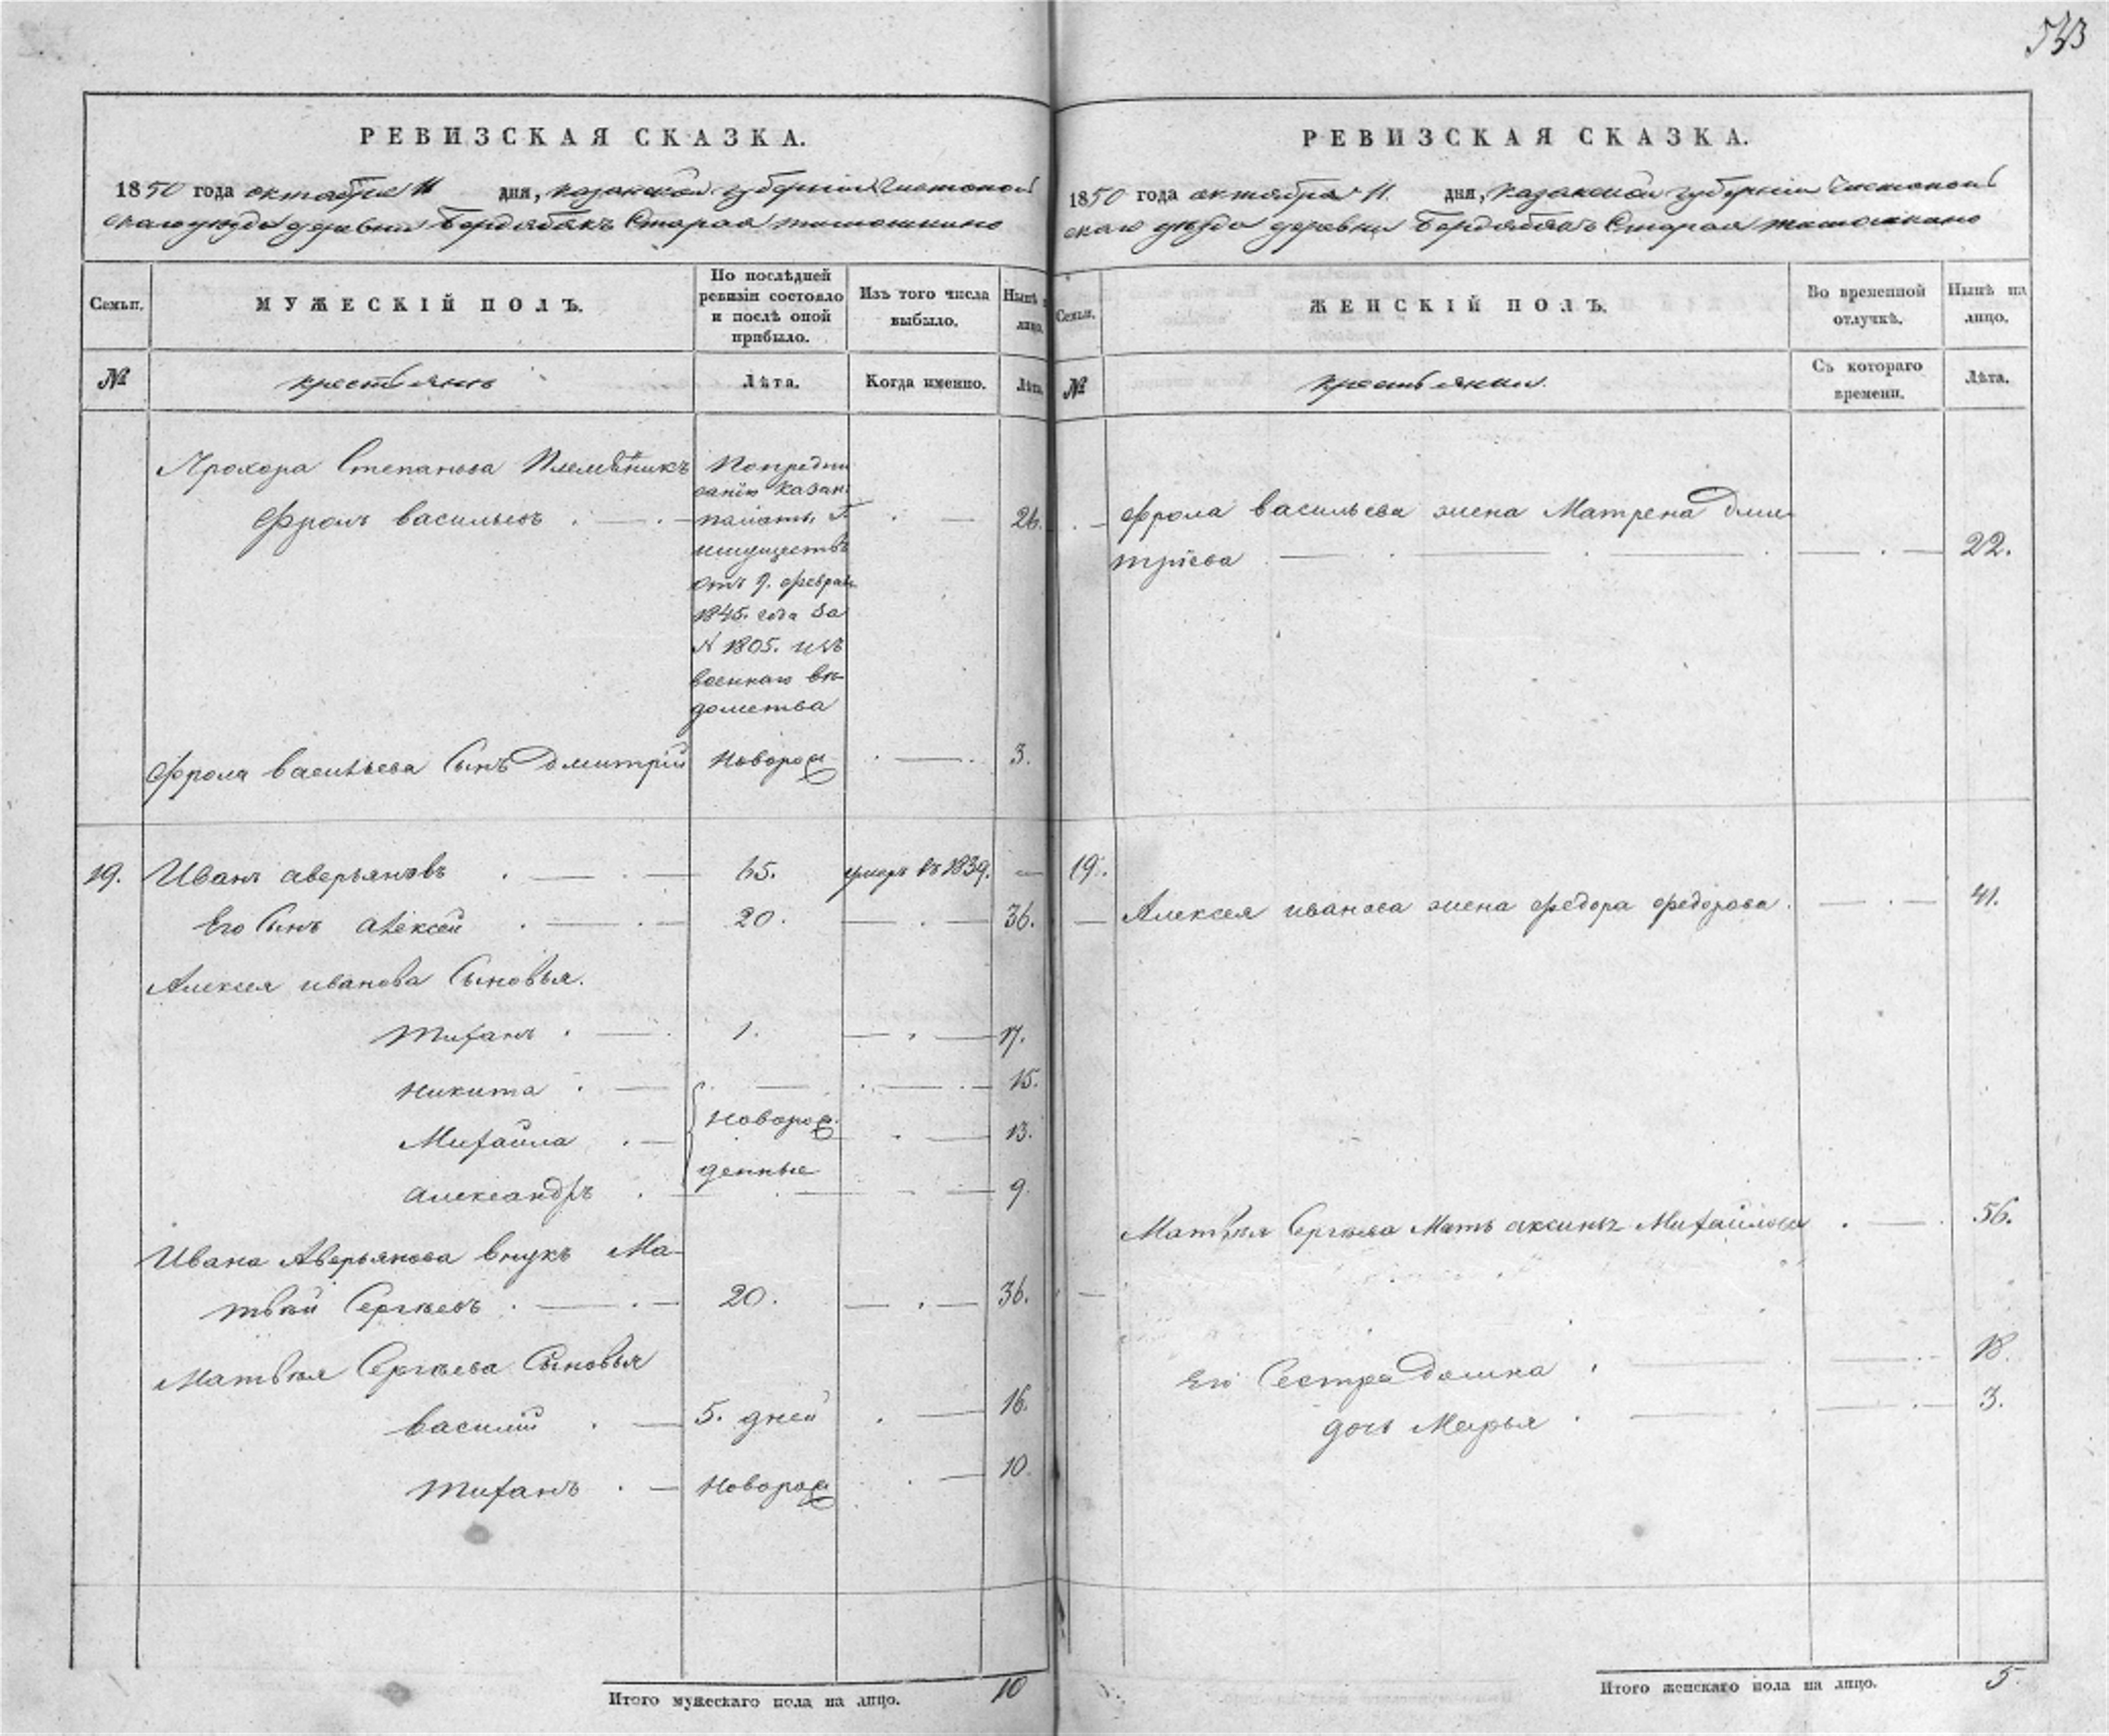 533
РЕВИЗСКАЯ СКАЗКА.
1850 года октября 11 дня, казанской губернии Чистополь
скаго уезда деревни Бердебякъ Старая
Семьи.
МУЖЕСКІЙ ПОЛЪ.
По послѣдней
ревизіи состояло
и послѣ оной
прибыло.
Изъ того числа
выбыло.
Нынѣ на
лицо.
№
крестьянъ
Лѣта.
Когда именно.
Лѣта.
Прохора Степанова Племѣникъ
Фролъ васильевъ
26.
Попредпи
санію казан.
палаты Г.
имуществъ
отъ 9. февраля
1845. года за
N 1805. изъ
военнаго вѣ
домства
Фрола васильева Сынъ Дмитрій Новорож 3.
19. Иванъ аверьяновъ 65. умеръ въ 1839. —
Его Сынъ алексей 20. 36.
Алексея иванова Сыновья.
тиханъ 1. 17.
никита 15.
Михайла новорож 13.
денные
александръ 9.
Ивана Аверьянова внукъ Ма-
твѣй Сергѣевъ 20. 36.
Матвѣя Сергѣева Сыновья
василій 5. дней 16.
тиханъ новорож 10.
Итого мужескаго пола на лицо. 10
РЕВИЗСКАЯ СКАЗКА.
1850 года октября 11. дня, казанской губерніи Чистополь
скаго уезда деревни Бердебякъ Старая
Семьи.
ЖЕНСКІЙ ПОЛЪ.
Во временной
отлучкѣ.
Нынѣ на
лицо.
№
крестьянки.
Съ котораго
времени.
Лѣта.
Фрола васильева жена Матрена Дми
тріева 22.
19.
Алексея иванова жена федора федорова. 41.
Матвѣя Сергѣева Мать аксинья Михайлова 56.
Его Сестра Домна 18.
дочь Марья 3.
Итого женскаго пола на лицо. 5